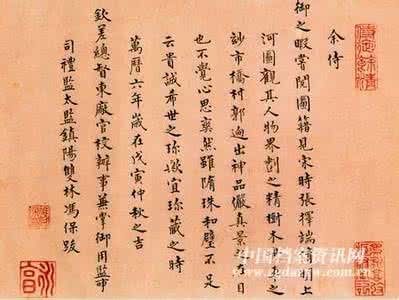 余侍
御之暇嘗閱圖籍見宋時張擇端清明上
河圖觀其人物界劃之精樹木舟車之
玅市橋村郭迥出神品儼真景之在目
也不覺心思爽然雖隋珠和璧不足
云貴誠希世之珍歟宜珍藏之時
萬曆六年歲在戊寅仲秋之吉
欽差總督東廠官校辦事兼掌御用監事
司禮監太監鎮陽雙林馮保跋
中国档案资讯网